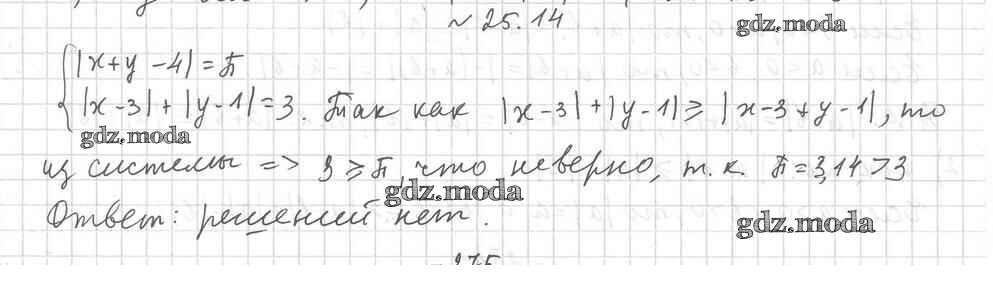 ~ 25.14
gdz.moda
|x+y-4| = π
|x-3|+|y-1|=3. Так как |x-3|+|y-1| ≥ |x-3+y-1|, то
gdz.moda
из системы => 3 ≥ π, что неверно, т.к. π = 3,14 > 3
gdz.moda
Ответ: решений нет.
gdz.moda